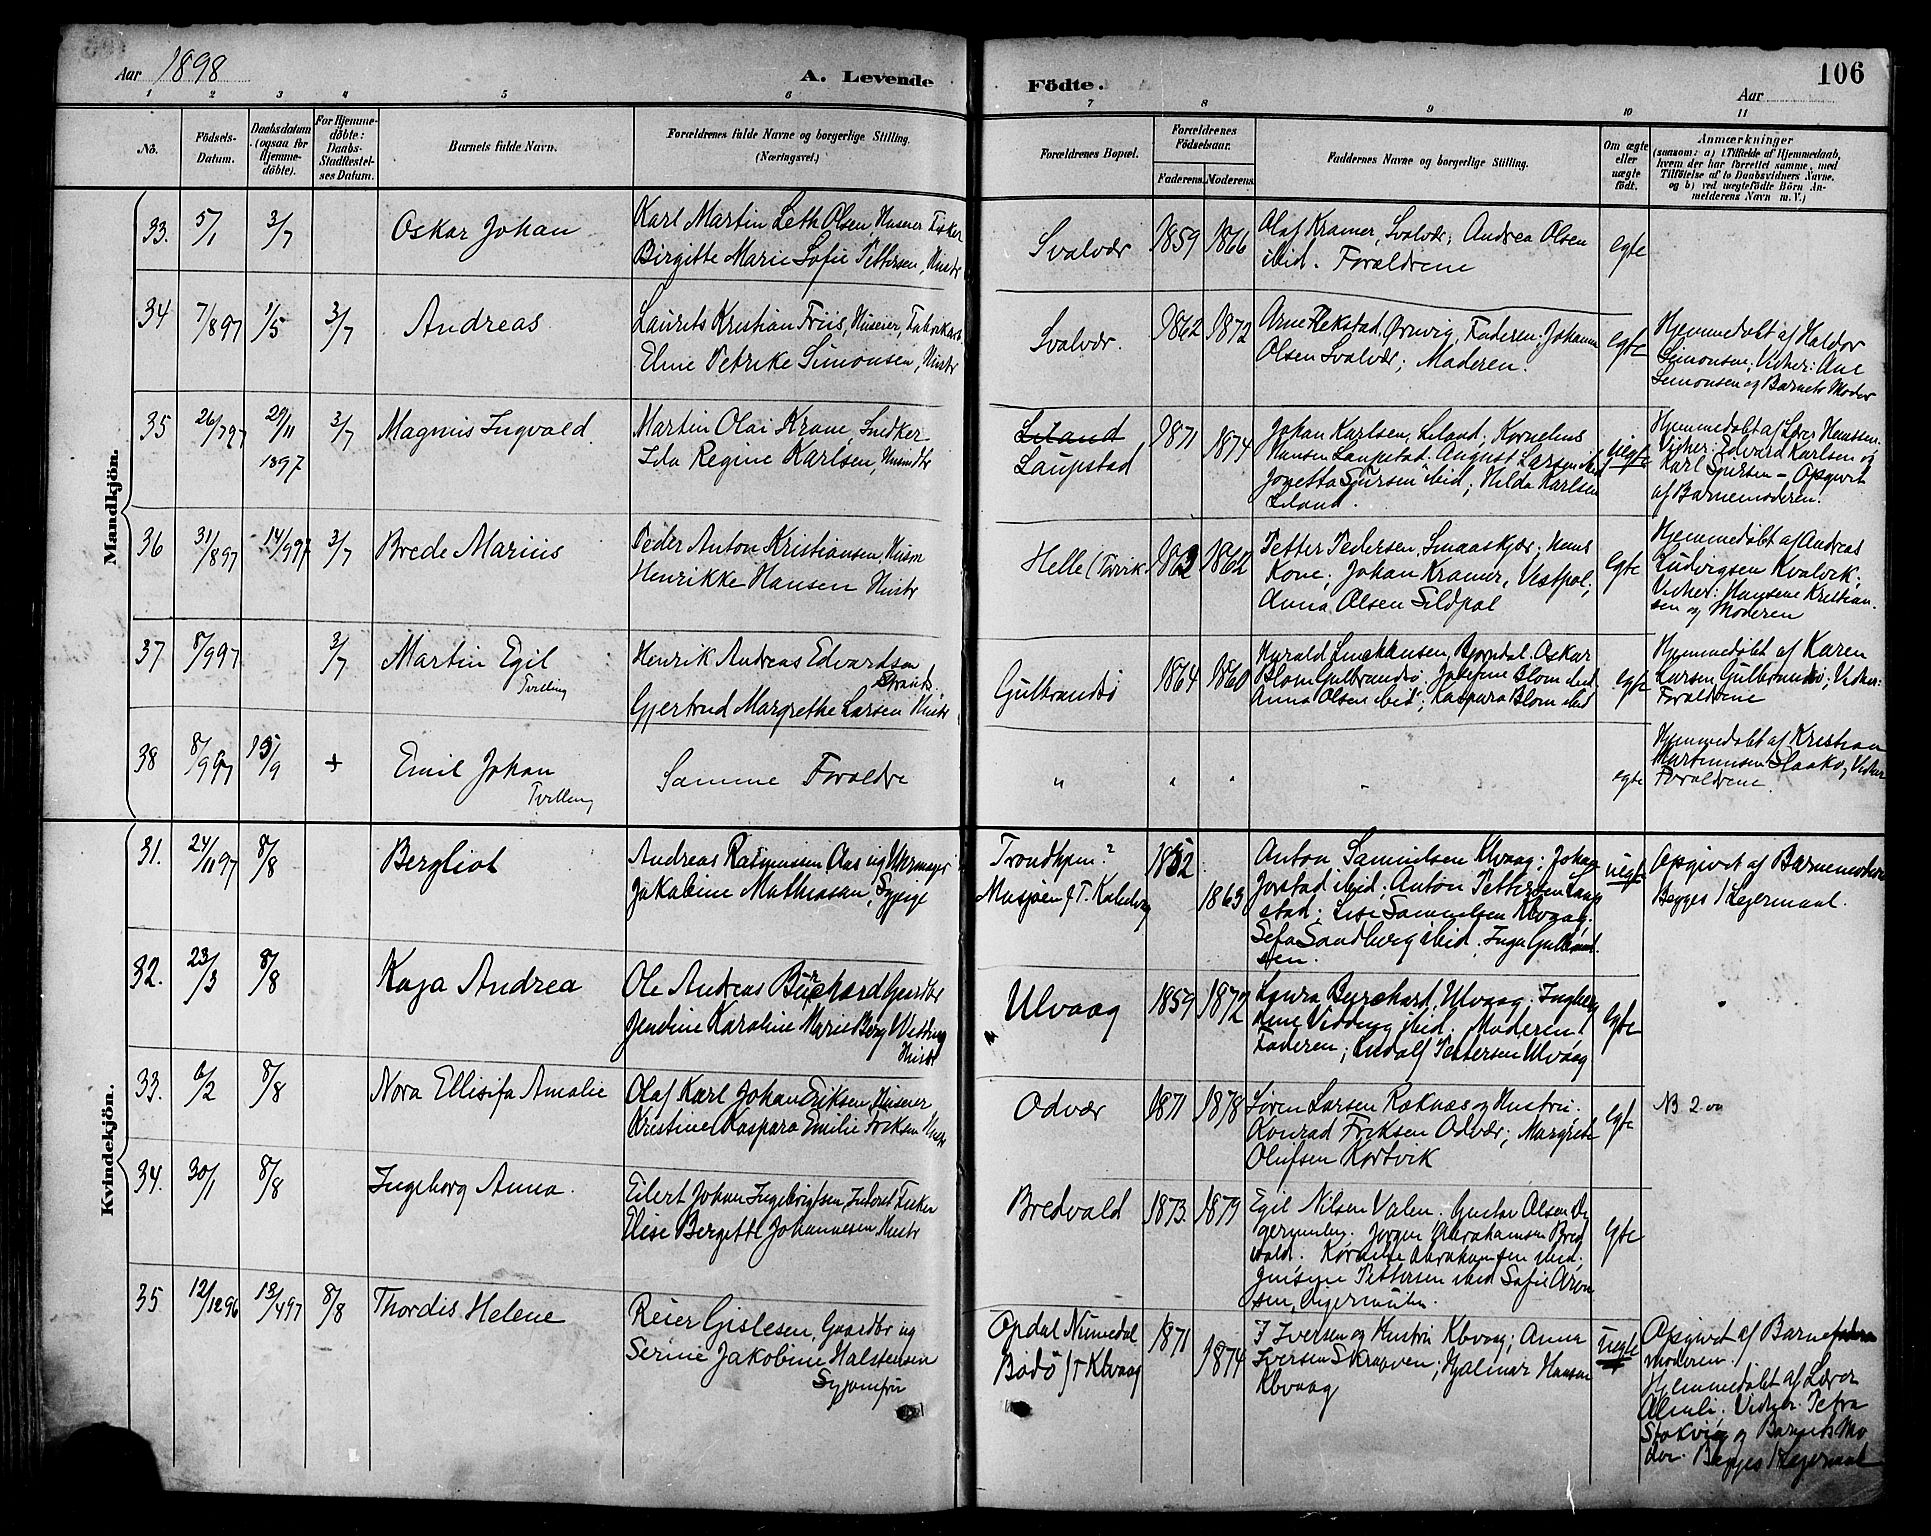 Aar 1898
A. Levende
Födte.
106
Aar
1 2 3 4 5 6 7 8 9 10 11
No.
Födsels-
Datum.
Daabsdatum
(ogsaa for
Hjemme-
døbte).
For Hjemme-
døbte:
Daabs-
Stadfæstel-
ses Datum.
Barnets fulde Navn.
Forældrenes fulde Navne og borgerlige Stilling.
(Næringsvei.)
Forældrenes Bopæl.
Forældrenes
Födselsaar.
Faderens. Moderens.
Faddernes Navne og borgerlige Stilling.
Om ægte
eller
uægte
födt.
Anmærkninger
(saasom: a) i Tilfælde af Hjemmedaab,
hvem der har forrettet samme, med
Tilföielse af to Daabsvidners Navne,
og b) ved uægtefödte Börn An-
melderens Navn m. V.)
Mandkjön.
33. 5/1 3/7 Oskar Johan
Karl Martin Leth Olsen, Huseier Fisker
Birgitte Marie Sofie Pettersen, Hustr
Svalvær 1859 1866
Olaf Kramer, Svalvær; Andrea Olsen
ibid. Forældrene
egte
34 7/897 1/5 3/7 Andreas
Laurits Kristian Friis, Huseier,
Eline Petrike Simonsen, Hustr
Svalvær. 1862 1872
Arne Rekstad, Ørnvig, Faderen, Johanna
Olsen Svalvær; Moderen.
egte
Hjemmedøbt af Haldor
Simonsen; Vidner: Ane
Simonsen og Barnets Moder
35 26/797 29/11 1897 3/7 Magnus Ingvald.
Martin Olai Krane, Snedker
Ida Regine Karlsen, Husmdtr
Liland
Laupstad
1871 1874
Johan Karlsen, Liland; Kornelius
Hansen Laupstad. August Larsen ibid
Jonetta Sjursen ibid; Hilda Karlsen
Liland.
uegte
Hjemmedøbt af Lærer
Vidner: Edvard Karlsen og
Karl Sjursen - Opgivet
af Barnemoderen.
36 31/897 14/997 3/7 Brede Marius
Peder Anton Kristiansen, Husm
Henrikke Hansen Hustr
Helle (Torvik. 1862
Petter Pedersen, Smaaskjær; Hans
Kone; Johan Kramer, Vestpol;
Anna Olsen Sildpol
egte
Hjemmedøbt af Andreas
Ludvigsen Kvalvik;
Vidner: Hansine Kristian-
sen og Moderen
37 8/997 3/7 Martin Egil
Tvilling
Henrik Andreas Edvardsen
Gjertrud Margrethe Larsen Hustr
Gulbrandsø 1864 1860
Blom Gulbrandsø, Josefine Blom ibid
Anna Olsen ibid; Kaspara Blom ibid
egte
Hjemmedøbt af Karen
Larsen Gulbrandsø; Vidner:
Forældrene
38 8/997 15/9 + Emil Johan
Tvilling
Samme Forældre
" " " "
egte
Hjemmedøbt af Kristian
Martinussen Slaakø, Vidner
Forældrene.
Kvindekjön.
31. 24/1197 8/8 Bergliot
Andreas Rasmussen Aas ug Uhrmager
Jakobine Mathiassen, Sypige
Trondhjem?
Mosjøen f.T. Kabelvaag
1852 1863
Anton Samuelsen Klvaag; Johan
Jorstad ibid; Anton Pettersen Laup
stad; Lise Samuelsen Klvaag.
Sefa Sandberg ibid; Inga Gulbrand
sen.
uegte
Opgivet af Barnemoderen
Begges 1 Leiermaal.
32. 23/3 8/8 Kaja Andrea
Ole Andreas Burchard Gaardbr
Jendine Karoline Marie Berg Wedding
Hustr
Ulvaag 1859 1872
Laura Burchard, Ulvaag. Ingeborg
Anne Vidding ibid. Moderen,
Faderen; Rudolf Pettersen Ulvaag
egte
33. 6/2 8/8 Nora Ellisifa Amalie
Olaf Karl Johan Eriksen, Huseier
Kristine Kaspara Emilie Eriksen Hustr
Odvær 1871 1878
Søren Larsen Raknæs og Hustru.
Konrad Eriksen Odvær; Margrete
Olufsen Kortvik
egte
NB
34. 30/1 8/8 Ingeborg Anna.
Eilert Johan Ingebrigtsen, Inderst Fisker
Elise Bergitte Johannesen Hustr
Bredvald 1873. 1879
Egil Nilsen Valen. Gustav Olsen Di
germulen. Jørgen Abrahamsen Bred
vald. Kornelie Abrahamsen ibid;
Jensine Pettersen ibid Sofie Aron
sen, Digermulen.
egte
35 12/1296 13/497 8/8 Thordis Helene
Reier Gislesen, Gaardbr ug
Serine Jakobine Halstensen
Syjomfru
Opdal Numedal
Bodö f T Klvaag
1871 1874
I Iversen og Hustru Klvaag; Anna
Iversen Skraaven; Hjalmar Hansen
Klvaag
uegte
Opgivet af Barne
moderen.
Hjemmedøbt af Lærer
Almli. Vidner. Petra
Stokvig og Barnets Mo
der. Begges 1 Leiermaal